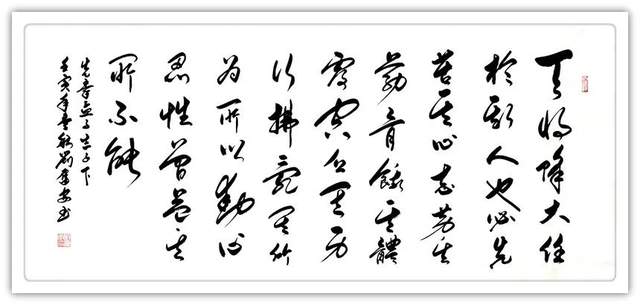 天将降大任
於斯人也必先
苦其心志劳其
筋骨餓其體
膚空乏其身
行拂亂其所
为所以動心
忍性曾益其
所不能
章孟子告子下
壬寅年秋劉书